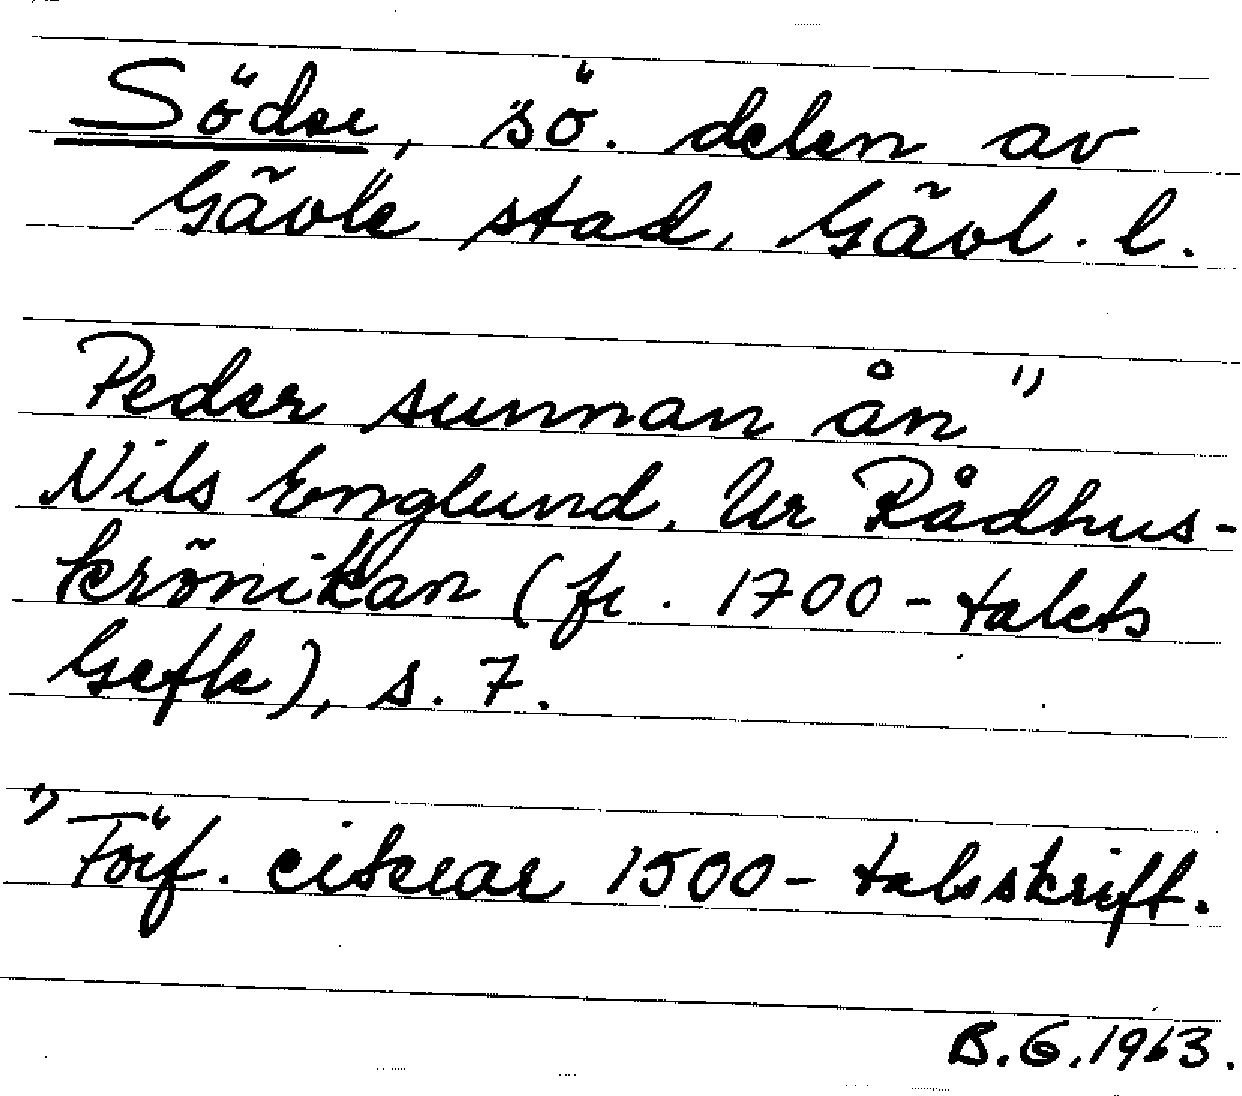 Söder, sö. delen av
Gävle stad, Gävl. l.
Peder sunnan ån 1)
Nils Englund, Ur Rådhus-
krönikan (fr. 1700-talets
Gefle), s. 7.
1) Förf. citerar 1500-talsskrift.
B.G. 1963.